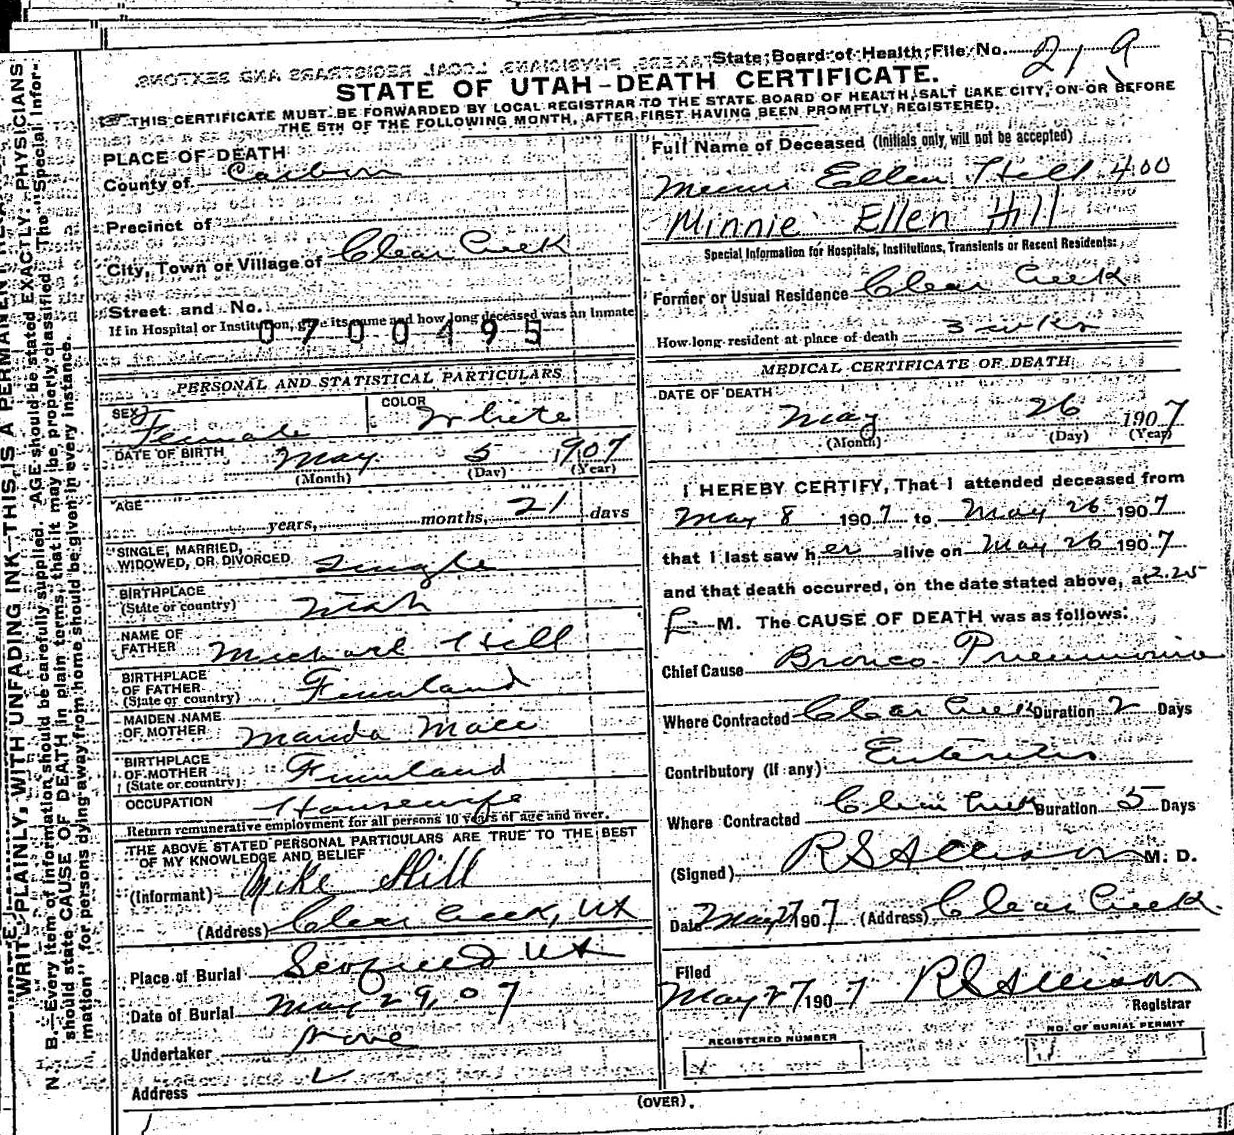 State Board of Health File No. 219
STATE OF UTAH-DEATH CERTIFICATE.
THIS CERTIFICATE MUST BE FORWARDED BY LOCAL REGISTRAR TO THE STATE BOARD OF HEALTH, SALT LAKE CITY, ON OR BEFORE
THE 5TH OF THE FOLLOWING MONTH, AFTER FIRST HAVING BEEN PROMPTLY REGISTERED.
PLACE OF DEATH
County of Carbon
Precinct of
City, Town or Village of Clear Creek
Street and No.
If in Hospital or Institution, give its name and how long deceased was an Inmate
0700495
PERSONAL AND STATISTICAL PARTICULARS
SEX Female COLOR White
DATE OF BIRTH May 5 1907
(Month) (Day) (Year)
AGE
years, months, 21 days
SINGLE, MARRIED,
WIDOWED, OR DIVORCED Single
BIRTHPLACE
(State or country) Utah
NAME OF
FATHER Michael Hill
BIRTHPLACE
OF FATHER
(State or country) Finnland
MAIDEN NAME
OF MOTHER Manda
BIRTHPLACE
OF MOTHER
(State or country) Finnland
OCCUPATION Housewife
Return remunerative employment for all persons 10 years of age and over.
THE ABOVE STATED PERSONAL PARTICULARS ARE TRUE TO THE BEST
OF MY KNOWLEDGE AND BELIEF
(Informant) Mike Hill
(Address) Clear Creek, Ut
Place of Burial Scofield Ut
Date of Burial May 29, 07
Undertaker None
Address
Full Name of Deceased (Initials only, will not be accepted)
Ellen Hill 400
Minnie Ellen Hill
Special Information for Hospitals, Institutions, Transients or Recent Residents:
Former or Usual Residence Clear Creek
How long resident at place of death 3 wks
MEDICAL CERTIFICATE OF DEATH
DATE OF DEATH
May 26 1907
(Month) (Day) (Year)
I HEREBY CERTIFY, That I attended deceased from
May 8 1907 to May 26 1907
that I last saw her alive on May 26 1907
and that death occurred, on the date stated above, at 2.25
M. The CAUSE OF DEATH was as follows:
Chief Cause Bronco Pneumonia
Where Contracted Clear Creek Duration 2 Days
Contributory (If any) Enteritis
Where Contracted Clear Creek Duration 5 Days
(Signed) R S Allison M. D.
Date May 27 1907 (Address) Clear Creek
Filed
May 27 1907 R S Allison
Registrar
REGISTERED NUMBER
NO. OF BURIAL PERMIT
(OVER).
WRITE PLAINLY, WITH UNFADING INK-THIS IS A PERMANENT
N. B.-Every item of information should be carefully supplied. AGE should be stated EXACTLY. PHYSICIANS
should state CAUSE OF DEATH in plain terms, that it may be properly classified. The "Special Infor-
mation" for persons dying away from home should be given in every instance.